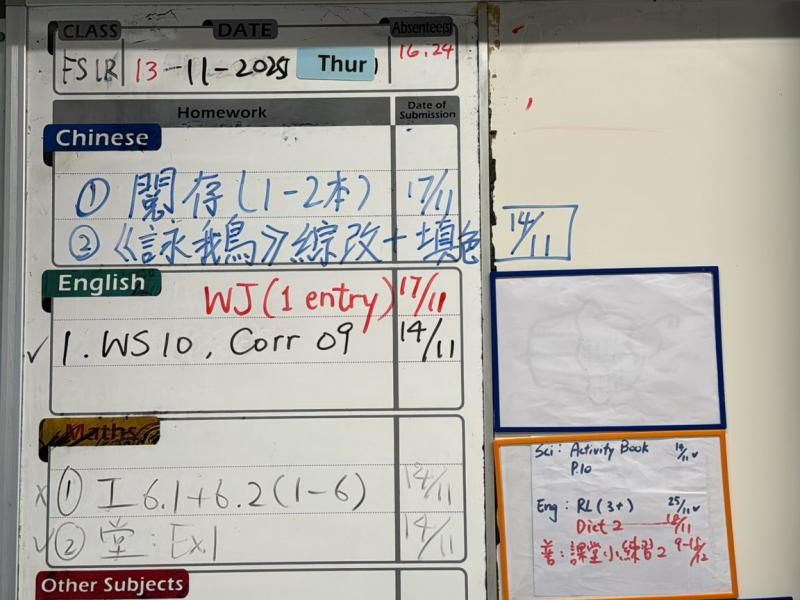 CLASS DATE Absentee(s)
13-11-2025 Thur 16.24
Homework Date of Submission
Chinese
① 閱存(1-2本) 17/11
② 《詠鵝》綜改+填色 14/11
English
WJ(1 entry) 17/11
✓ 1. WS10, Corr 09 14/11
Maths
x ① 工6.1+6.2(1-6) 14/11
✓ ② 堂:Ex1 14/11
Other Subjects
Sci: Activity Book
P.10
Eng: RL(3+) 25/11 ✓
Dict 2 18/11
普:課堂小練習2